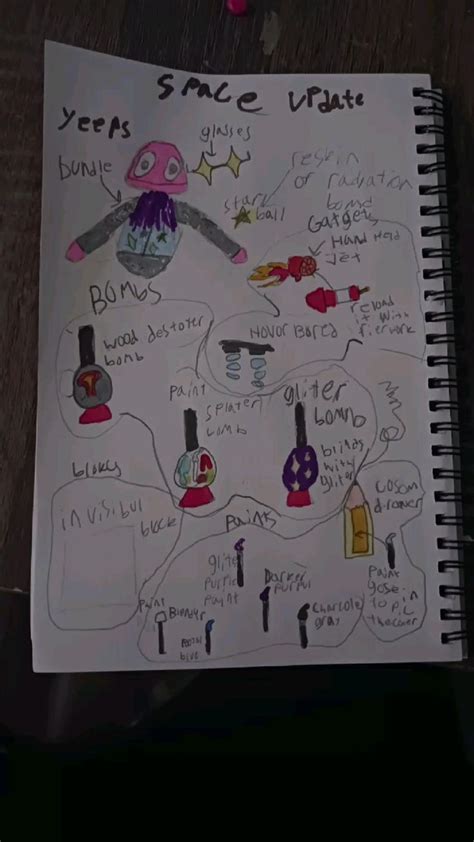 space update
Yeeps
glasses
bundle
reskin
of radiation
bomb
star
ball
Gatgets
Hand Held
Jet
BOMBS
reload
it with
fierwork
wood destoyer
bomb
Hovor Bored
Paint
splater
bomb
gliter
bomb
blinds
with
gliter
blokes
in visibul
block
Paints
gliter
purple
paint
Darker
purpul
Paint
blue
Charcole
gray
Paint
gose in
to